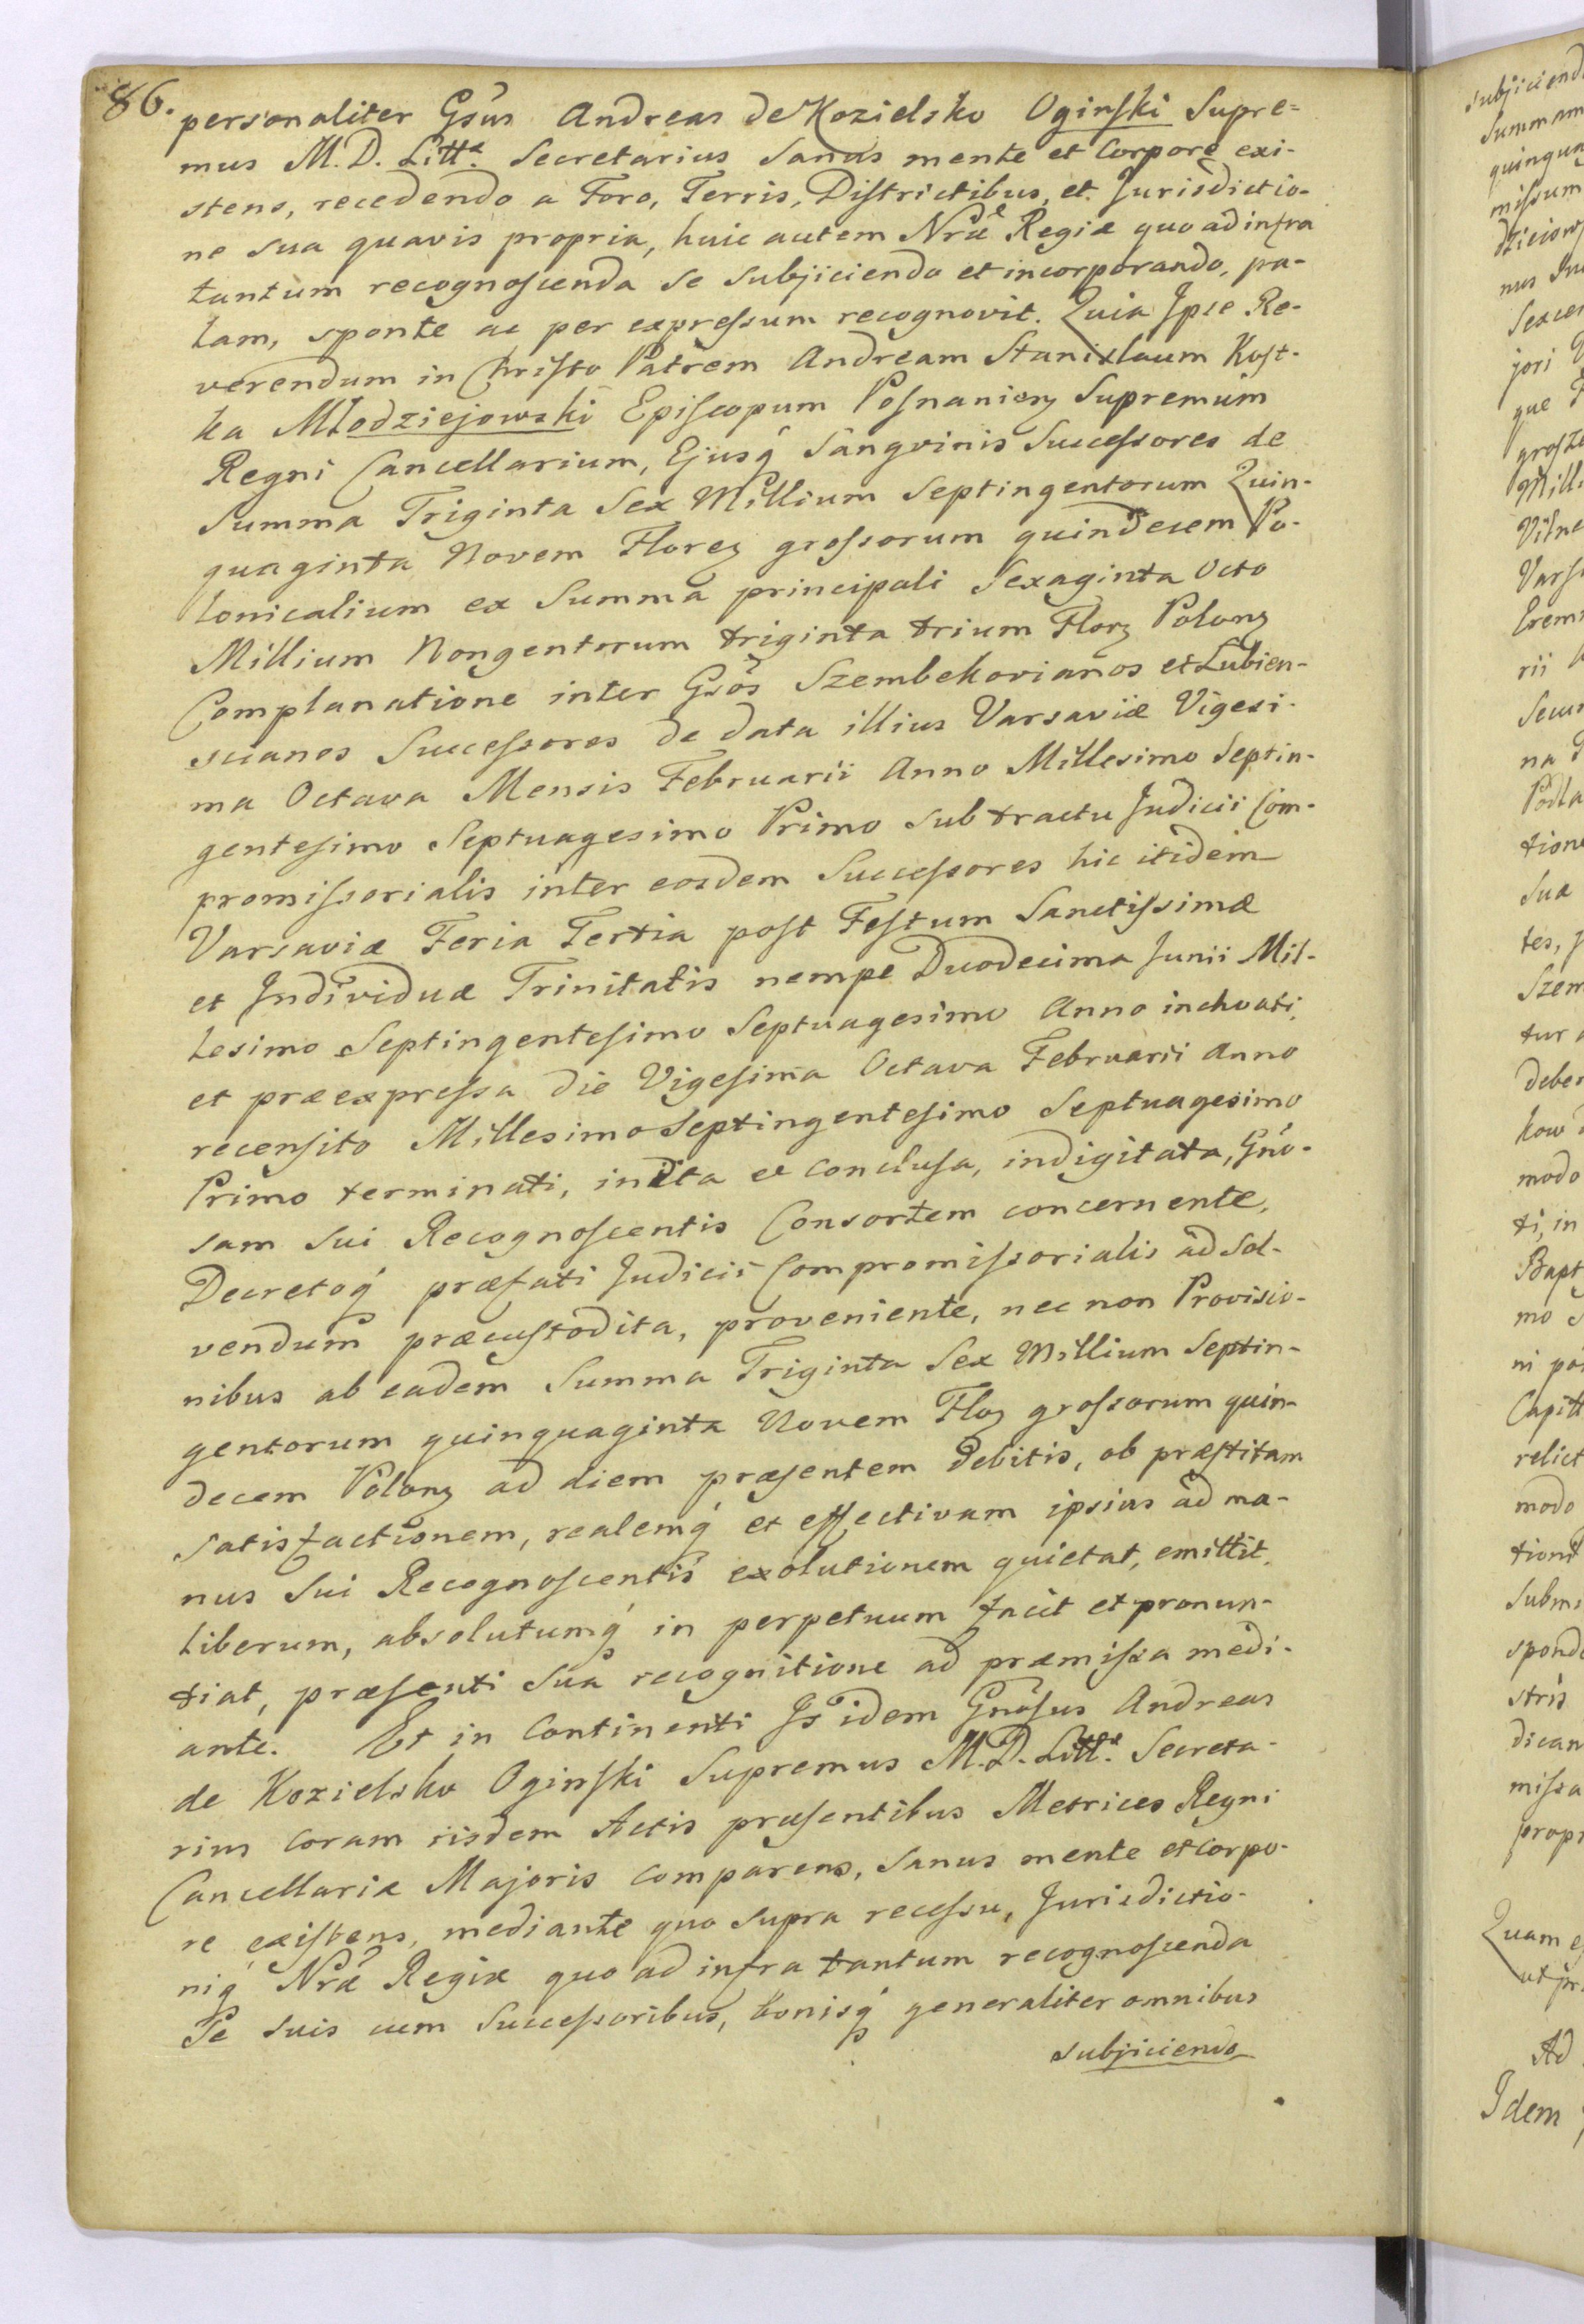 86. personaliter Gsus Andreas de Kozielsko Oginski Supre-
mus M. D. Litt. Secretarius Sanus mente et Corpore exi-
stens, recedendo a Foro, Terris, Districtibus, et Jurisdictio-
ne sua quavis propria, huic autem Nræ Regiæ quo ad infra
tantum recognoscenda se subjiciendo et incorporando, pa-
lam, sponte ac per expressum recognovit. Quia Ipse Re-
verendum in Christo Patrem Andream Stanislaum Kost-
ka Młodziejowski Episcopum Posnanien Supremum
Regni Cancellarium, Ejusq Sangvinis Successores de
Summa Triginta Sex Millium Septingentorum Quin-
quaginta Novem Floren grossorum quindecem Po-
lonicalium ex Summa principali Sexaginta Octo
Millium Nongentorum triginta trium Flor Polon
Complanatione inter Gsos Szembekovianos et Lubien-
scianos Successores de data illius Varsaviæ Vigesi-
ma Octava Mensis Februarii Anno Millesimo Septin-
gentesimo Septuagesimo Primo sub tractu Judicii Com-
promissorialis inter eosdem Successores hic itidem
Varsaviæ Feria Tertia post Festum Sanctissimæ
et Individuæ Trinitatis nempe Duodecima Junii Mil-
lesimo Septingentesimo Septuagesimo Anno inchoati,
et præexpressa die Vigesima Octava Februarii Anno
recensito Millesimo Septingentesimo Septuagesimo
Primo terminati, inita et conclusa, indigitata, Gno-
sam sui Recognoscentis Consortem concernente,
Decretoq præfati Judicii Compromissorialis ad sol-
vendum præcustodita, proveniente, nec non Provisio-
nibus ab eadem Summa Triginta Sex Millium Septin-
gentorum quinquaginta Novem Flor grossorum quin-
decem Polon ad diem præsentem debitis, ob præstitam
satisfactionem, realemq et effectivam ipsius ad ma-
nus sui Recognoscentis exolutionem quietat, emittit,
liberum, absolutumq in perpetuum facit et pronun-
tiat, præsenti sua recognitione ad præmissa medi-
ante. Et in Continenti Is idem Gnosus Andreas
de Kozielsko Oginski Supremus M. D. Litt. Secreta-
rius coram iisdem Actis præsentibus Metrices Regni
Cancellariæ Majoris comparens, sanus mente et corpo-
re existens, mediante quo supra recessu, Jurisdictio-
niq Nræ Regiæ quo ad infra tantum recognoscenda
Se suis cum Successoribus, bonisq generaliter omnibus
subjiciendo